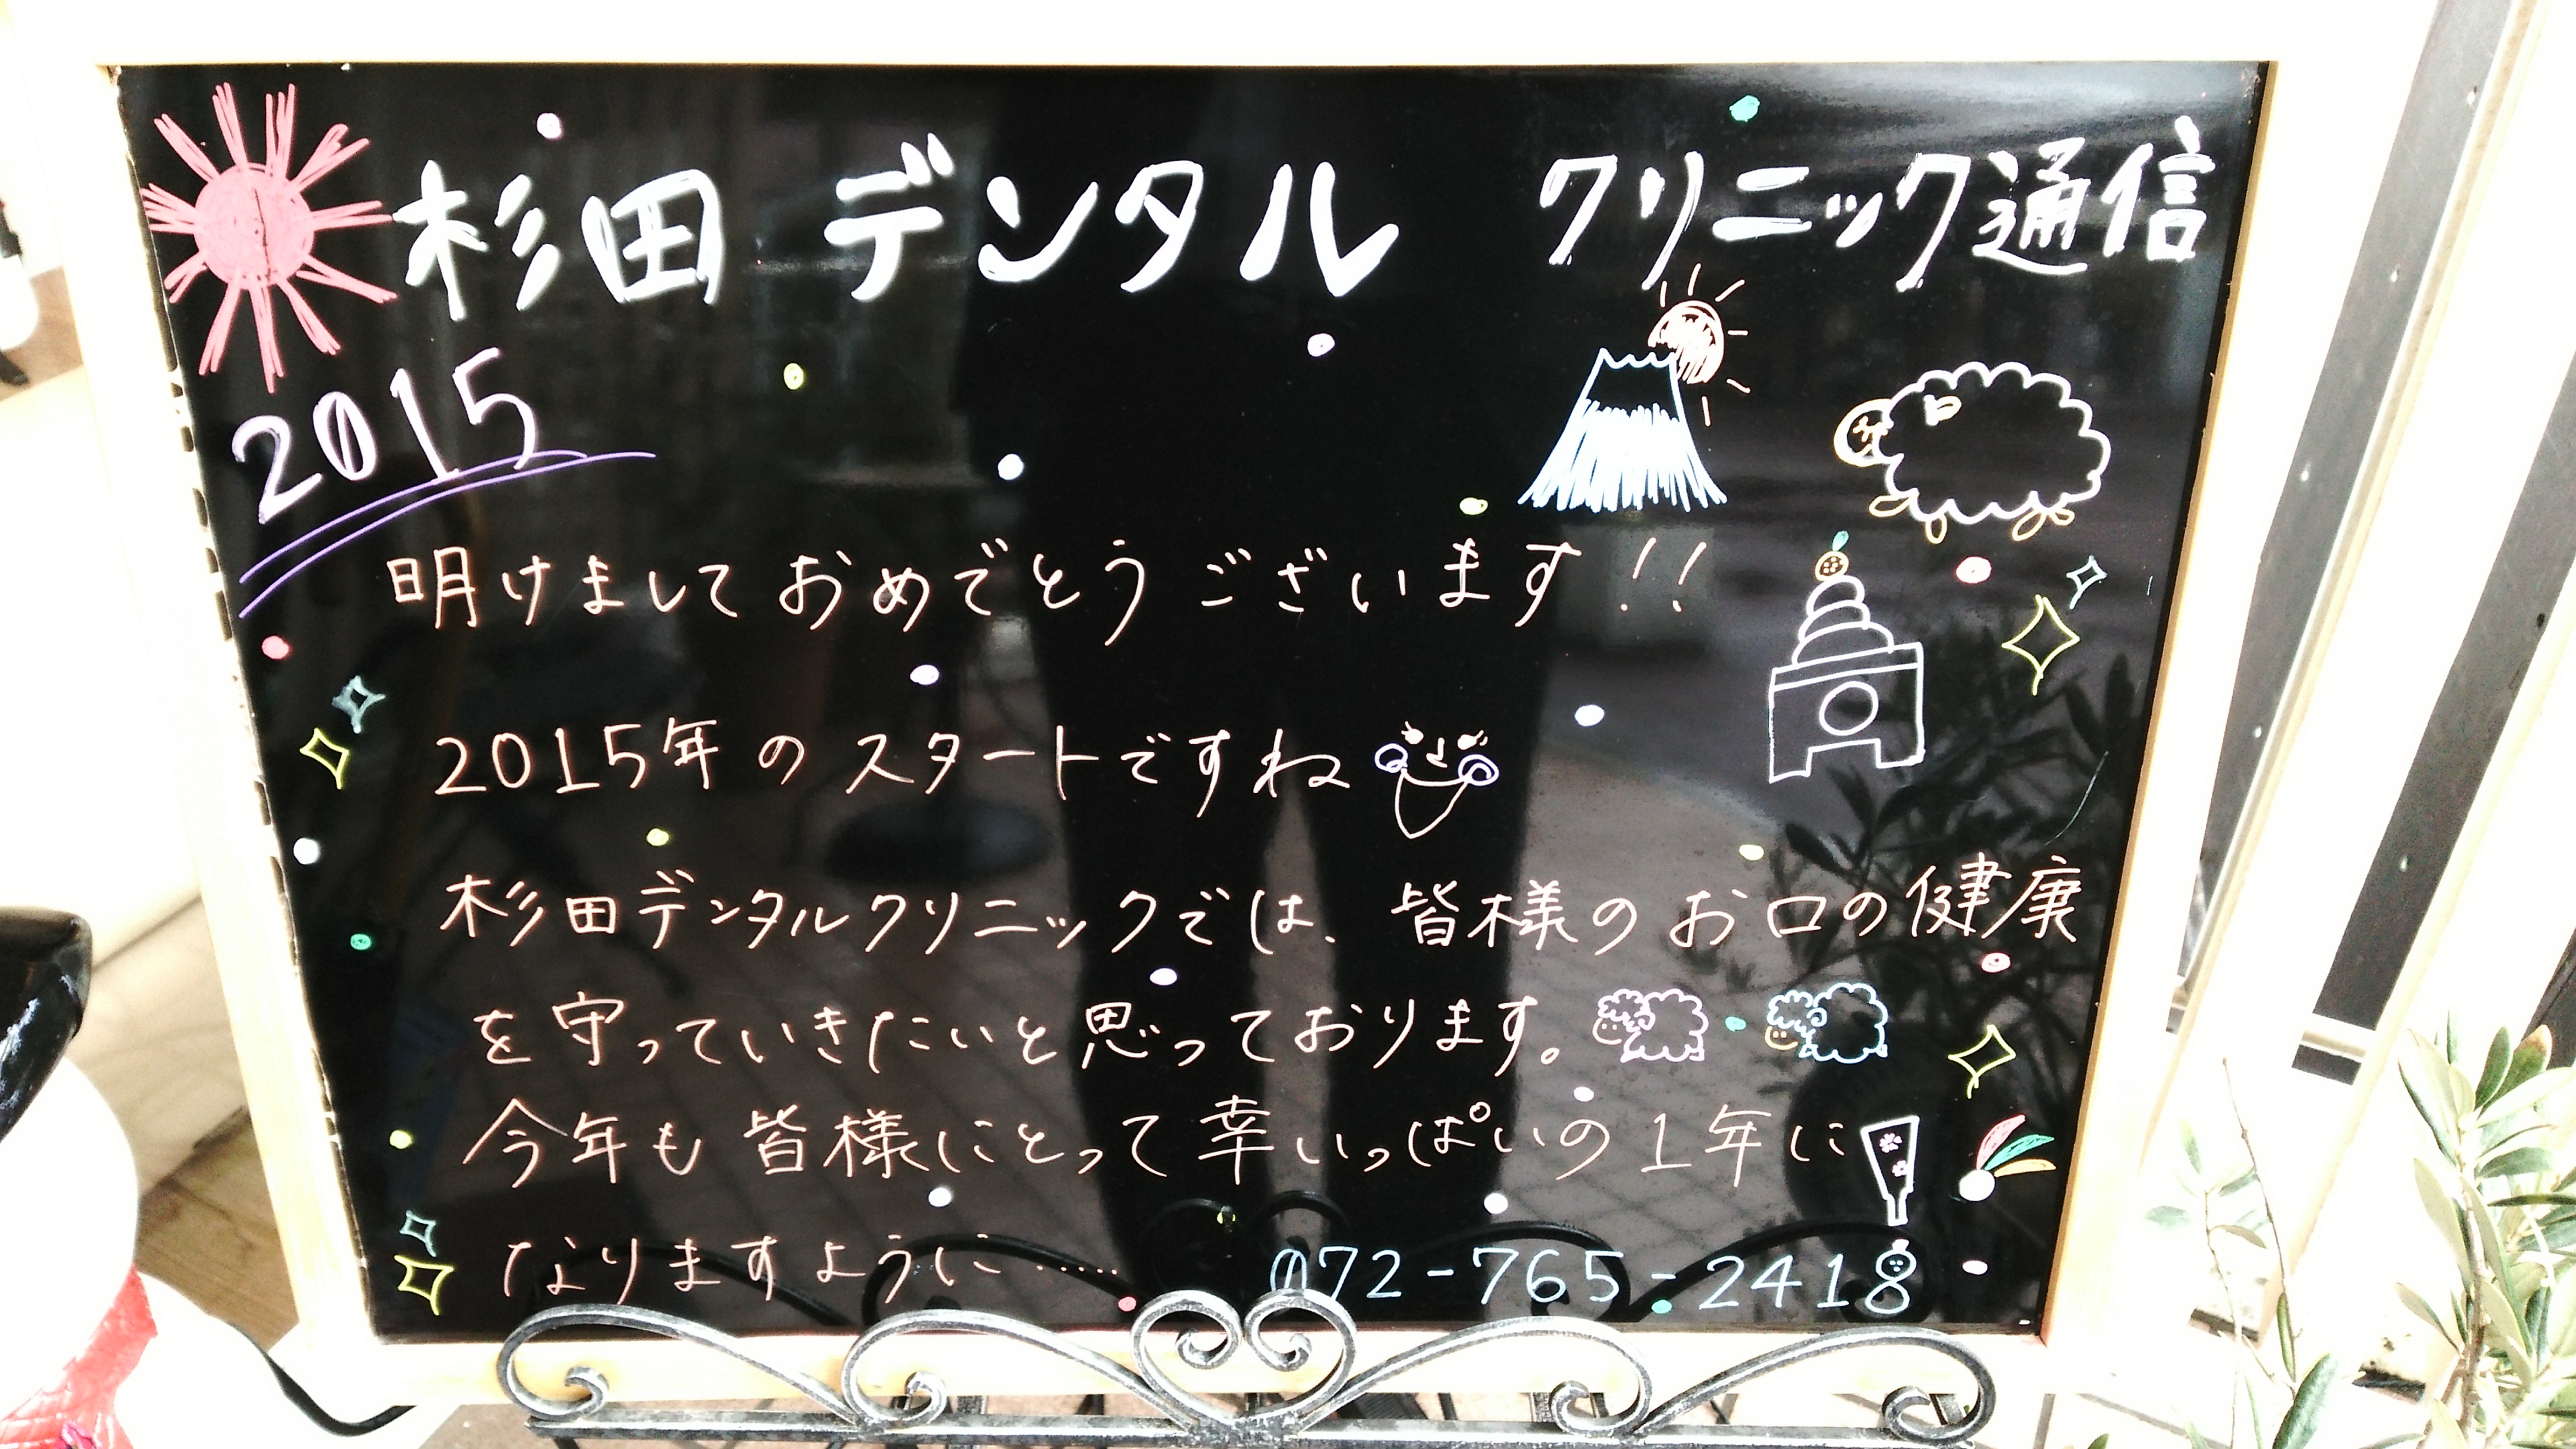 杉田 デンタル クリニック通信
2015
明けましておめでとうございます!!
2015年のスタートですね
杉田デンタルクリニックでは、皆様のお口の健康
を守っていきたいと思っております。
今年も皆様にとって幸いっぱいの1年に
なりますように……
072-765-2418